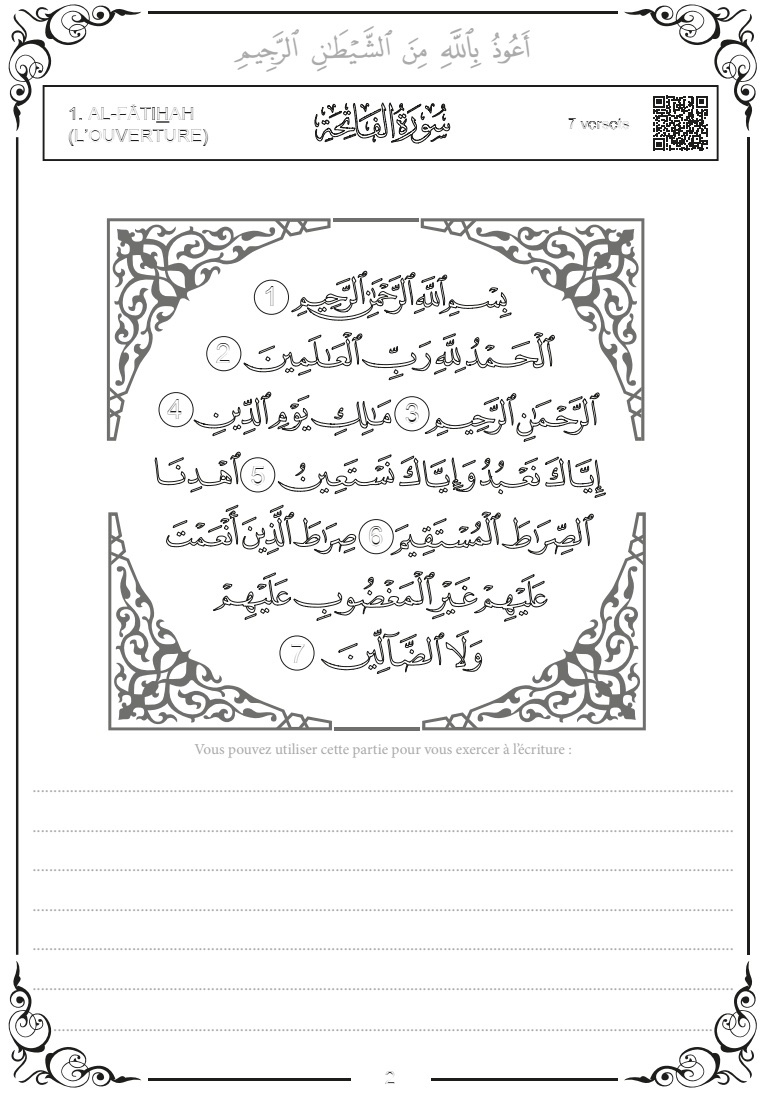 أَعُوذُ بِٱللَّهِ مِنَ ٱلشَّيْطَٰنِ ٱلرَّجِيمِ
1. AL-FÂTIHAH
(L'OUVERTURE)
سُورَةُ الفَاتِحَةِ
7 versets
بِسْمِ ٱللَّهِ ٱلرَّحْمَٰنِ ٱلرَّحِيمِ 1
ٱلْحَمْدُ لِلَّهِ رَبِّ ٱلْعَٰلَمِينَ 2
ٱلرَّحْمَٰنِ ٱلرَّحِيمِ 3 مَٰلِكِ يَوْمِ ٱلدِّينِ 4
إِيَّاكَ نَعْبُدُ وَإِيَّاكَ نَسْتَعِينُ 5 ٱهْدِنَا
ٱلصِّرَٰطَ ٱلْمُسْتَقِيمَ 6 صِرَٰطَ ٱلَّذِينَ أَنْعَمْتَ
عَلَيْهِمْ غَيْرِ ٱلْمَغْضُوبِ عَلَيْهِمْ
وَلَا ٱلضَّآلِّينَ 7
Vous pouvez utiliser cette partie pour vous exercer à l'écriture :
2